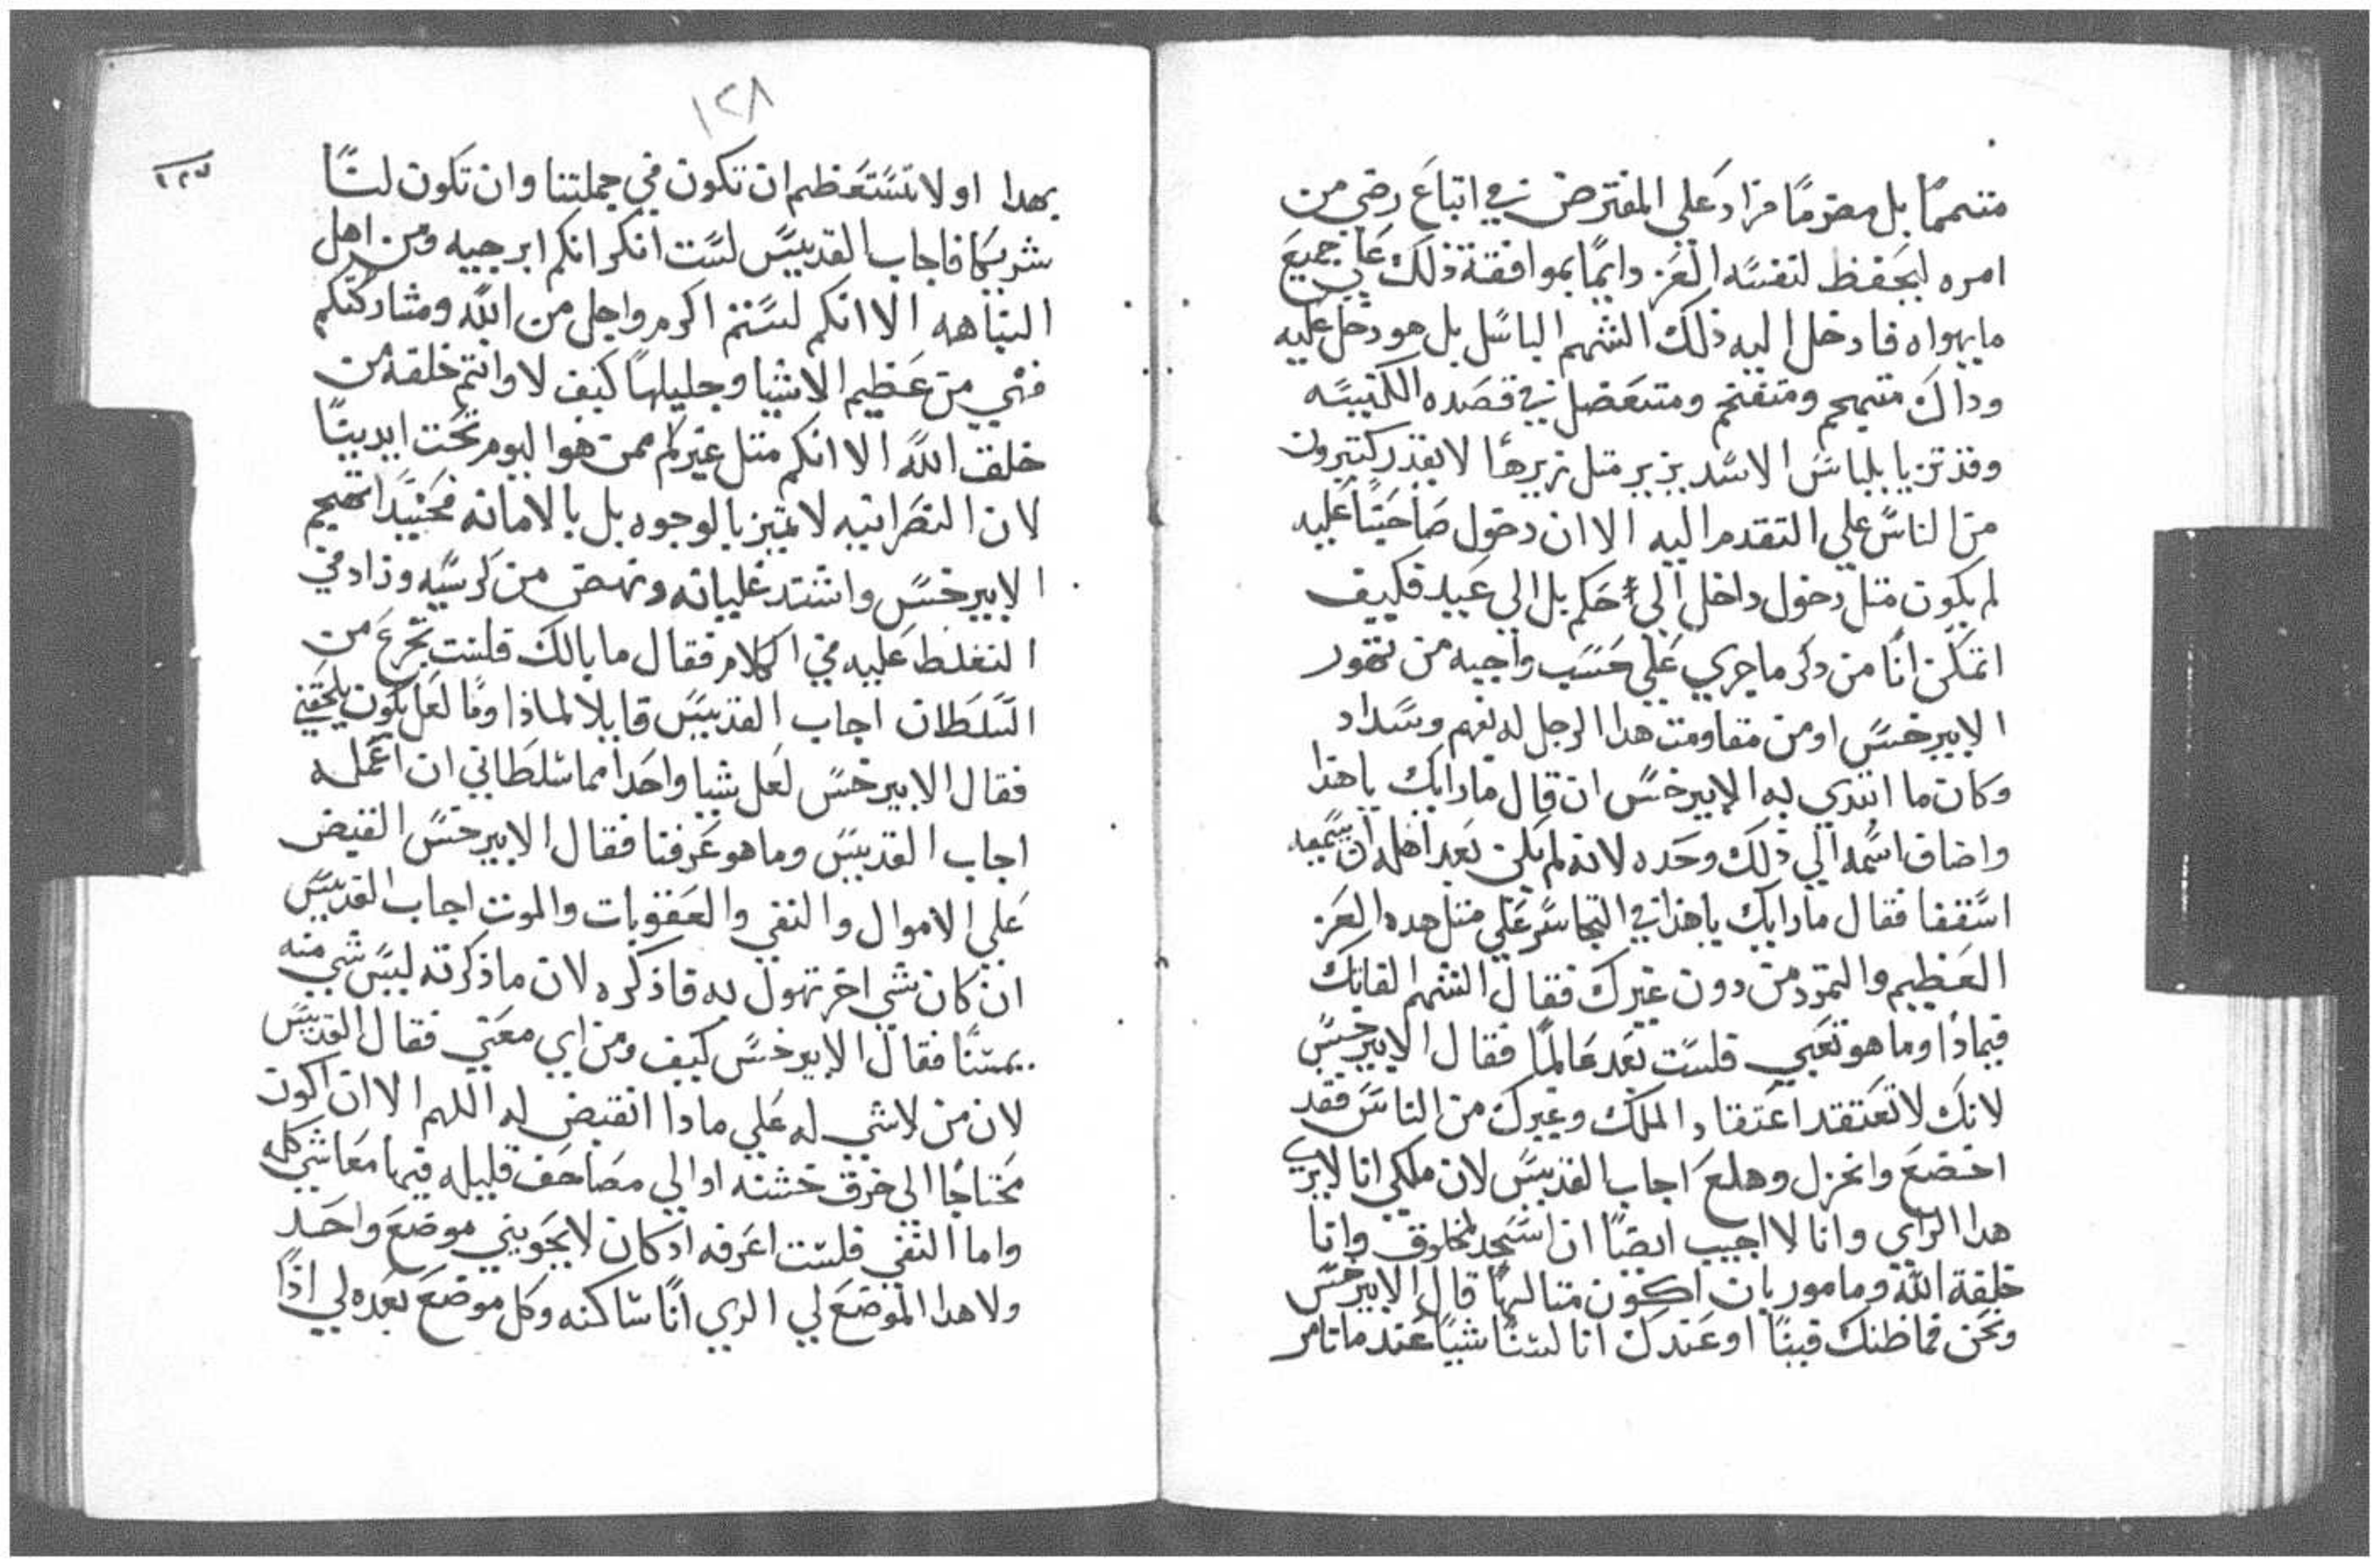 متسمما بل مضرما فزاد علي المفترض في اتباع رضي من
امره ليحفظ لنفسه العز دايما بموافقة ذلك علي جميع
ما يهواه فادخل اليه ذلك الشهم الباسل بل هو دخل عليه
وداك متهجم ومتفخم ومتعضل في قصده الكنيسه
وقد تزيا بلباس الاسد يزير مثل زيرها لا يقدر كثيرون
من الناس علي التقدم اليه الا ان دخول صاحبنا عليه
لم يكون مثل دخول داخل الي حكم بل الي عبيد فكيف
اتمكن انا من دكر ما جري علي حسب واجبه من تهور
الابيرخس او من مقاومت هدا الرجل له بفهم وسداد
وكان ما ابتدي به الابيرخس ان قال مارايك ياهذا
واضاف اسمه الي ذلك وحده لانه لم يكن بعد اهله ان يسميه
اسقفا فقال ما رايك ياهذا في التجاسر علي مثل هده العز
العظيم والتمرد من دون غيرك فقال الشهم الفاتك
فبماذا وما هو تعبي فلست بعد عالما فقال الابيرخس
لانك لا تعتقد اعتقاد الملك وغيرك من الناس فقد
اخضع وانخزل وهلع اجاب القديس لان ملكي انا لا يريد
هدا الراي وانا لا اجيب ايضا ان اسجد لمخلوق وانا
خلقة الله ومامور بان اكون متالها قال الابيرخس
ونحن فما ظنك فينا او عندك انا لسنا شيا عند ما نامر
١٢٨
بهدا او لا تستعظم ان تكون في جملتنا وان تكون لنا
شريكا فاجاب القديس لست انكر انكم ابرجيه ومن اهل
النباهه الا انكم لستم اكرم واجل من الله ومشاركتكم
فهي من عظيم الاشيا وجليلها كيف لا وانتم خلقه من
خلق الله الا انكم مثل غيركم ممن هو اليوم تحت ايدينا
لان النصرانيه لا تميز بالوجوه بل بالامانه فحينيدا تهجم
الابيرخس واشتد غليانه ونهض من كرسيه وزاد في
التغلظ عليه في الكلام فقال ما بالك فلست تجزع من
السلطان اجاب القديس قايلا لماذا وما لعل يكون يلحقني
فقال الابيرخس لعل شيا واحدا مما سلطاني ان اعمله
اجاب القديس وما هو عرفنا فقال الابيرخس القبض
علي الاموال والنفي والعقوبات والموت اجاب القديس
ان كان شي اخر تهول به فاذكره لان ما ذكرته ليس شي منه
يمسنا فقال الابيرخس كيف ومن اي معني فقال القديس
لان من لا شي له علي مادا انقبض له اللهم الا ان اكون
محتاجا الي خرق خشنه او الي مصاحف قليله فيها معاشي كله
واما النفي فلست اعرفه اد كان لا يحويني موضع واحد
ولا هدا الموضع لي الدي انا ساكنه وكل موضع بعده لي اذا